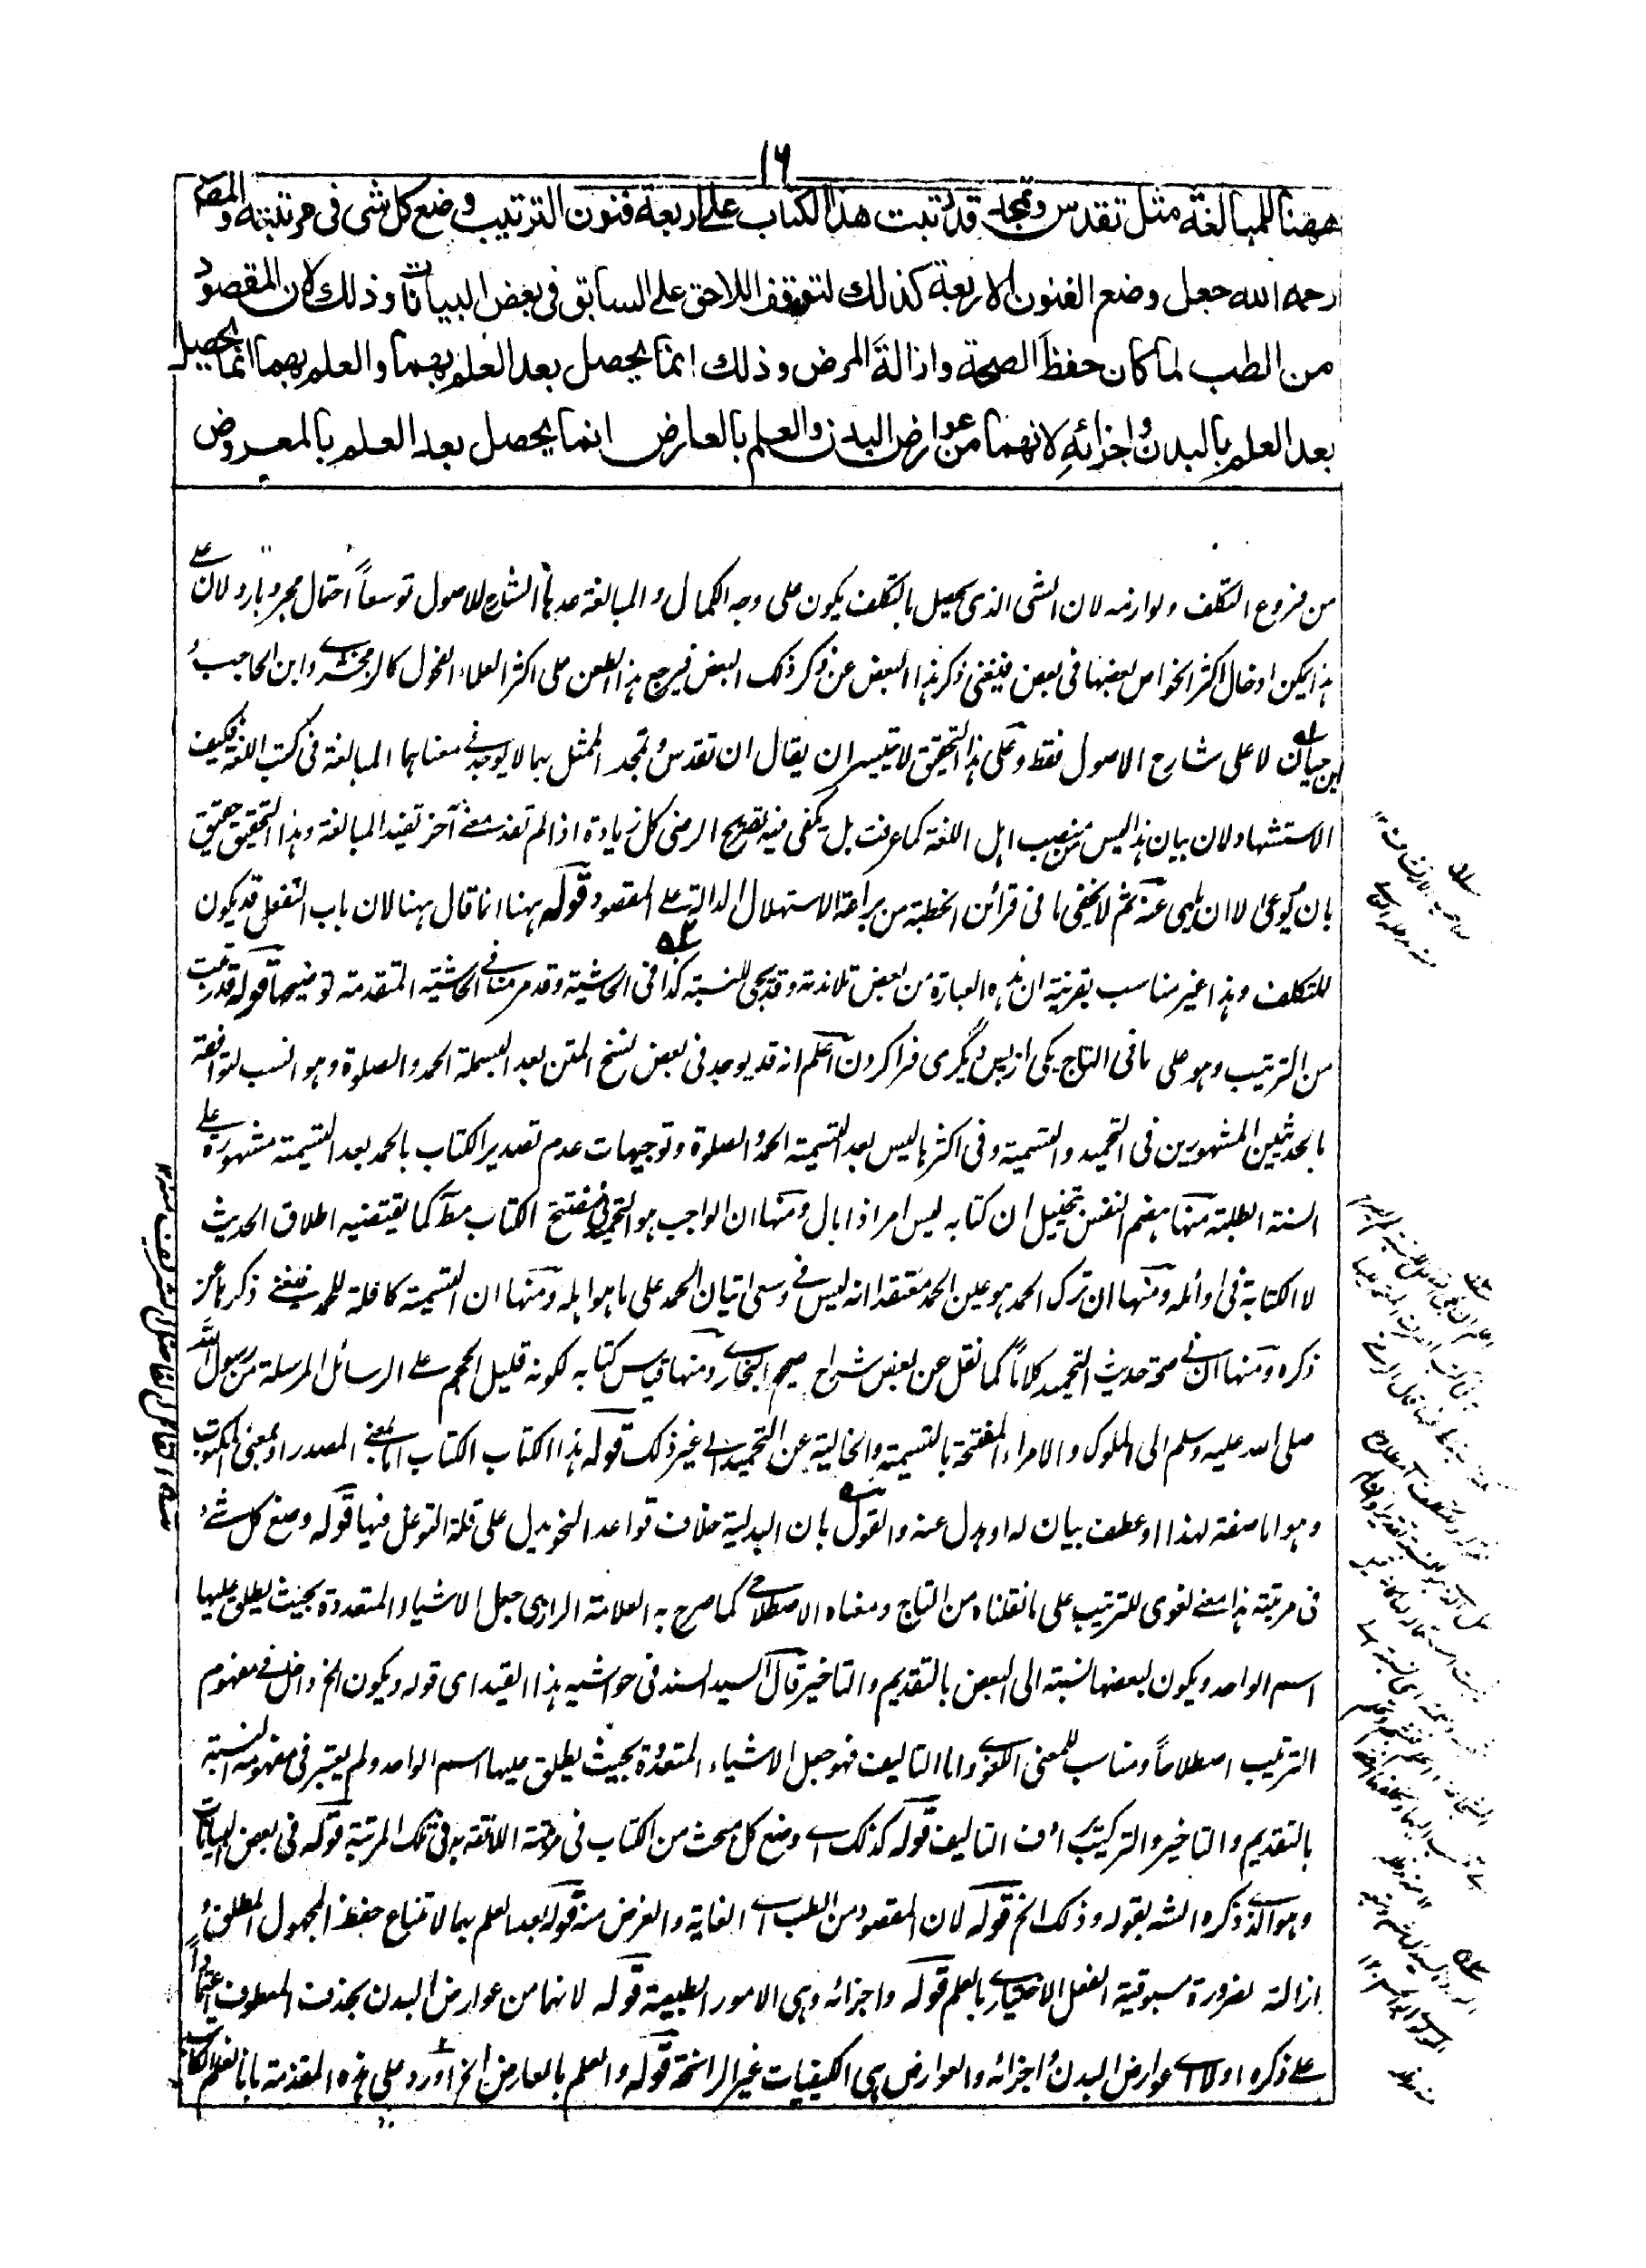 ١٦
ههنا للمبالغة مثل تقدس وتمجد قد رتبت هذا الكتاب على اربعة فنون الترتيب وضع كل شى فى مرتبته والمص
رحمه الله جعل وضع الفنون الاربعة كذلك لتوقف اللاحق على السابق فى بعض البيانات وذلك لان المقصود
من الطب لما كان حفظ الصحة وازالة المرض وذلك انما يحصل بعد العلم بهما والعلم بهما انما يحصل
بعد العلم بالبدن واجزائه لانهما من عوارض البدن والعلم بالعارض انما يحصل بعد العلم بالمعروض
من فروع التكلف ولوازمه لان الشى الذى يحصل بالتكلف يكون على وجه الكمال والمبالغة الشارح للاصول توسعاً احتمال مجرد بارد لان على
هذا يمكن ادخال اكثر الخواص بعضها فى بعض فيغنى ذكر هذا البعض عن ذكر ذلك البعض فيرجع هذا الطعن على اكثر العلماء الفحول كالزمخشرى وابن الحاجب و
ابن حيان لا على شارح الاصول فقط وعلى هذا التحقيق لا يتيسر ان يقال ان تقدس وتمجد الممثل بهما لا يوجد فى معناهما المبالغة فى كتب اللغة فكيف
الاستشهاد لان بيان هذا ليس من منصب اهل اللغة كما عرفت بل يكفى فيه تصريح الرضى كل زيادة اذا لم تفد معنى آخر تفيد المبالغة وهذا التحقيق حقيق
بان يوعى لا ان يلهى عنه ثم لا يخفى ما فى قرائن الخطبة من براعة الاستهلال الدالة على المقصود قوله ههنا انما قال ههنا لان باب التفعل قد يكون
للتكلف وهذا غير مناسب بقرينة ان هذه العبارة من بعض تلامذته وقد يجئ للنسبة كذا فى الحاشية وقد مر منا فى الحاشية المتقدمة توضيحها قوله قد رتبت
من الترتيب وهو على ما فى التاج يكى از پس ديگرى فرا كردن اعلم انه قد يوجد فى بعض نسخ المتن بعد البسملة الحمد والصلوة وهو انسب لتوافقه
بالحديثين المشهورين فى التحميد والتسمية وفى اكثرها ليس بعد التسمية الحمد والصلوة وتوجيهات عدم تصدير الكتاب بالحمد بعد التسمية مشهورة على
السنة الطلبة منها هضم النفس بتخييل ان كتابه ليس امرا ذا بال ومنها ان الواجب هو التحميد فى مفتتح الكتاب مطلقا كما يقتضيه اطلاق الحديث
لا الكتابة فى اوائله ومنها ان ترك الحمد هو عين الحمد معتقدا انه ليس فى وسعى اتيان الحمد على ما هو اهله ومنها ان التسمية كافلة للحمد فيغنى ذكرها عن
ذكره ومنها ان فى صحة حديث التحميد كلاماً كما نقل عن بعض شراح صحيح البخارى ومنها قياس كتابه لكونه قليل الحجم على الرسائل المرسلة من رسول الله
صلى الله عليه وسلم الى الملوك والامراء المفتتحة بالتسمية والخالية عن التحميد الى غير ذلك قوله هذا الكتاب الكتاب اما بمعنى المصدر او بمعنى المكتوب
وهو اما صفة لهذا او عطف بيان له او بدل عنه والقول بان البدلية خلاف قواعد النحو يدل على قلة التوغل فيها قوله وضع كل شئ
فى مرتبته هذا معنى لغوى للترتيب على ما نقلناه من التاج ومعناه الاصطلاحى كما صرح به العلامة الرازى جعل الاشياء المتعددة بحيث يطلق عليها
اسم الواحد ويكون لبعضها نسبة الى البعض بالتقديم والتاخير قال السيد السند فى حواشيه هذا القيد اى قوله ويكون الخ داخل فى مفهوم
الترتيب اصطلاحاً ومناسب للمعنى اللغوى واما التاليف فهو جعل الاشياء المتعددة بحيث يطلق عليها اسم الواحد ولم يعتبر فى مفهومه النسبة
بالتقديم والتاخير والتركيب يرادف التاليف قوله كذلك اى وضع كل مبحث من الكتاب فى مرتبته اللائقة به فى تلك المرتبة قوله فى بعض البيانات
وهو الذى ذكره الشه بقوله وذلك الخ قوله لان المقصود من الطب اى الغاية والغرض منه قوله بعد العلم بهما لامتناع حفظ المجهول المطلق و
ازالته لضرورة مسبوقية الفعل الاختيارى بالعلم قوله واجزائه وهى الامور الطبيعية قوله لانهما من عوارض البدن بحذف المعطوف اعتماداً
على ذكره اولا اى عوارض البدن واجزائه والعوارض هى الكيفيات غير الراسخة قوله والعلم بالعارض الخ اورد على هذه المقدمة بانا نعلم